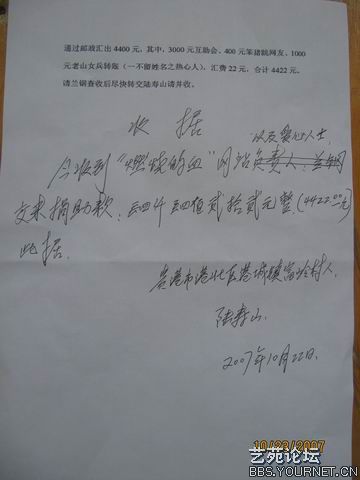 通过邮政汇出 4400 元，其中，3000 元互助会、400 元笨猪跳网友、1000
元老山女兵转账（一不留姓名之热心人），汇费 22 元，合计 4422 元。
请兰钢查收后尽快转交陆寿山请并收。
收 据
以及爱心人士
今收到“燃烧的血”网站负责人：兰钢
交来捐助款：四仟四佰贰拾贰元整(4422.00元)
此据.
贵港市港北区港城镇富岭村人.
陆寿山.
2007年10月22日.
10/23/2007
艺苑论坛
BBS.YOURNET.CN